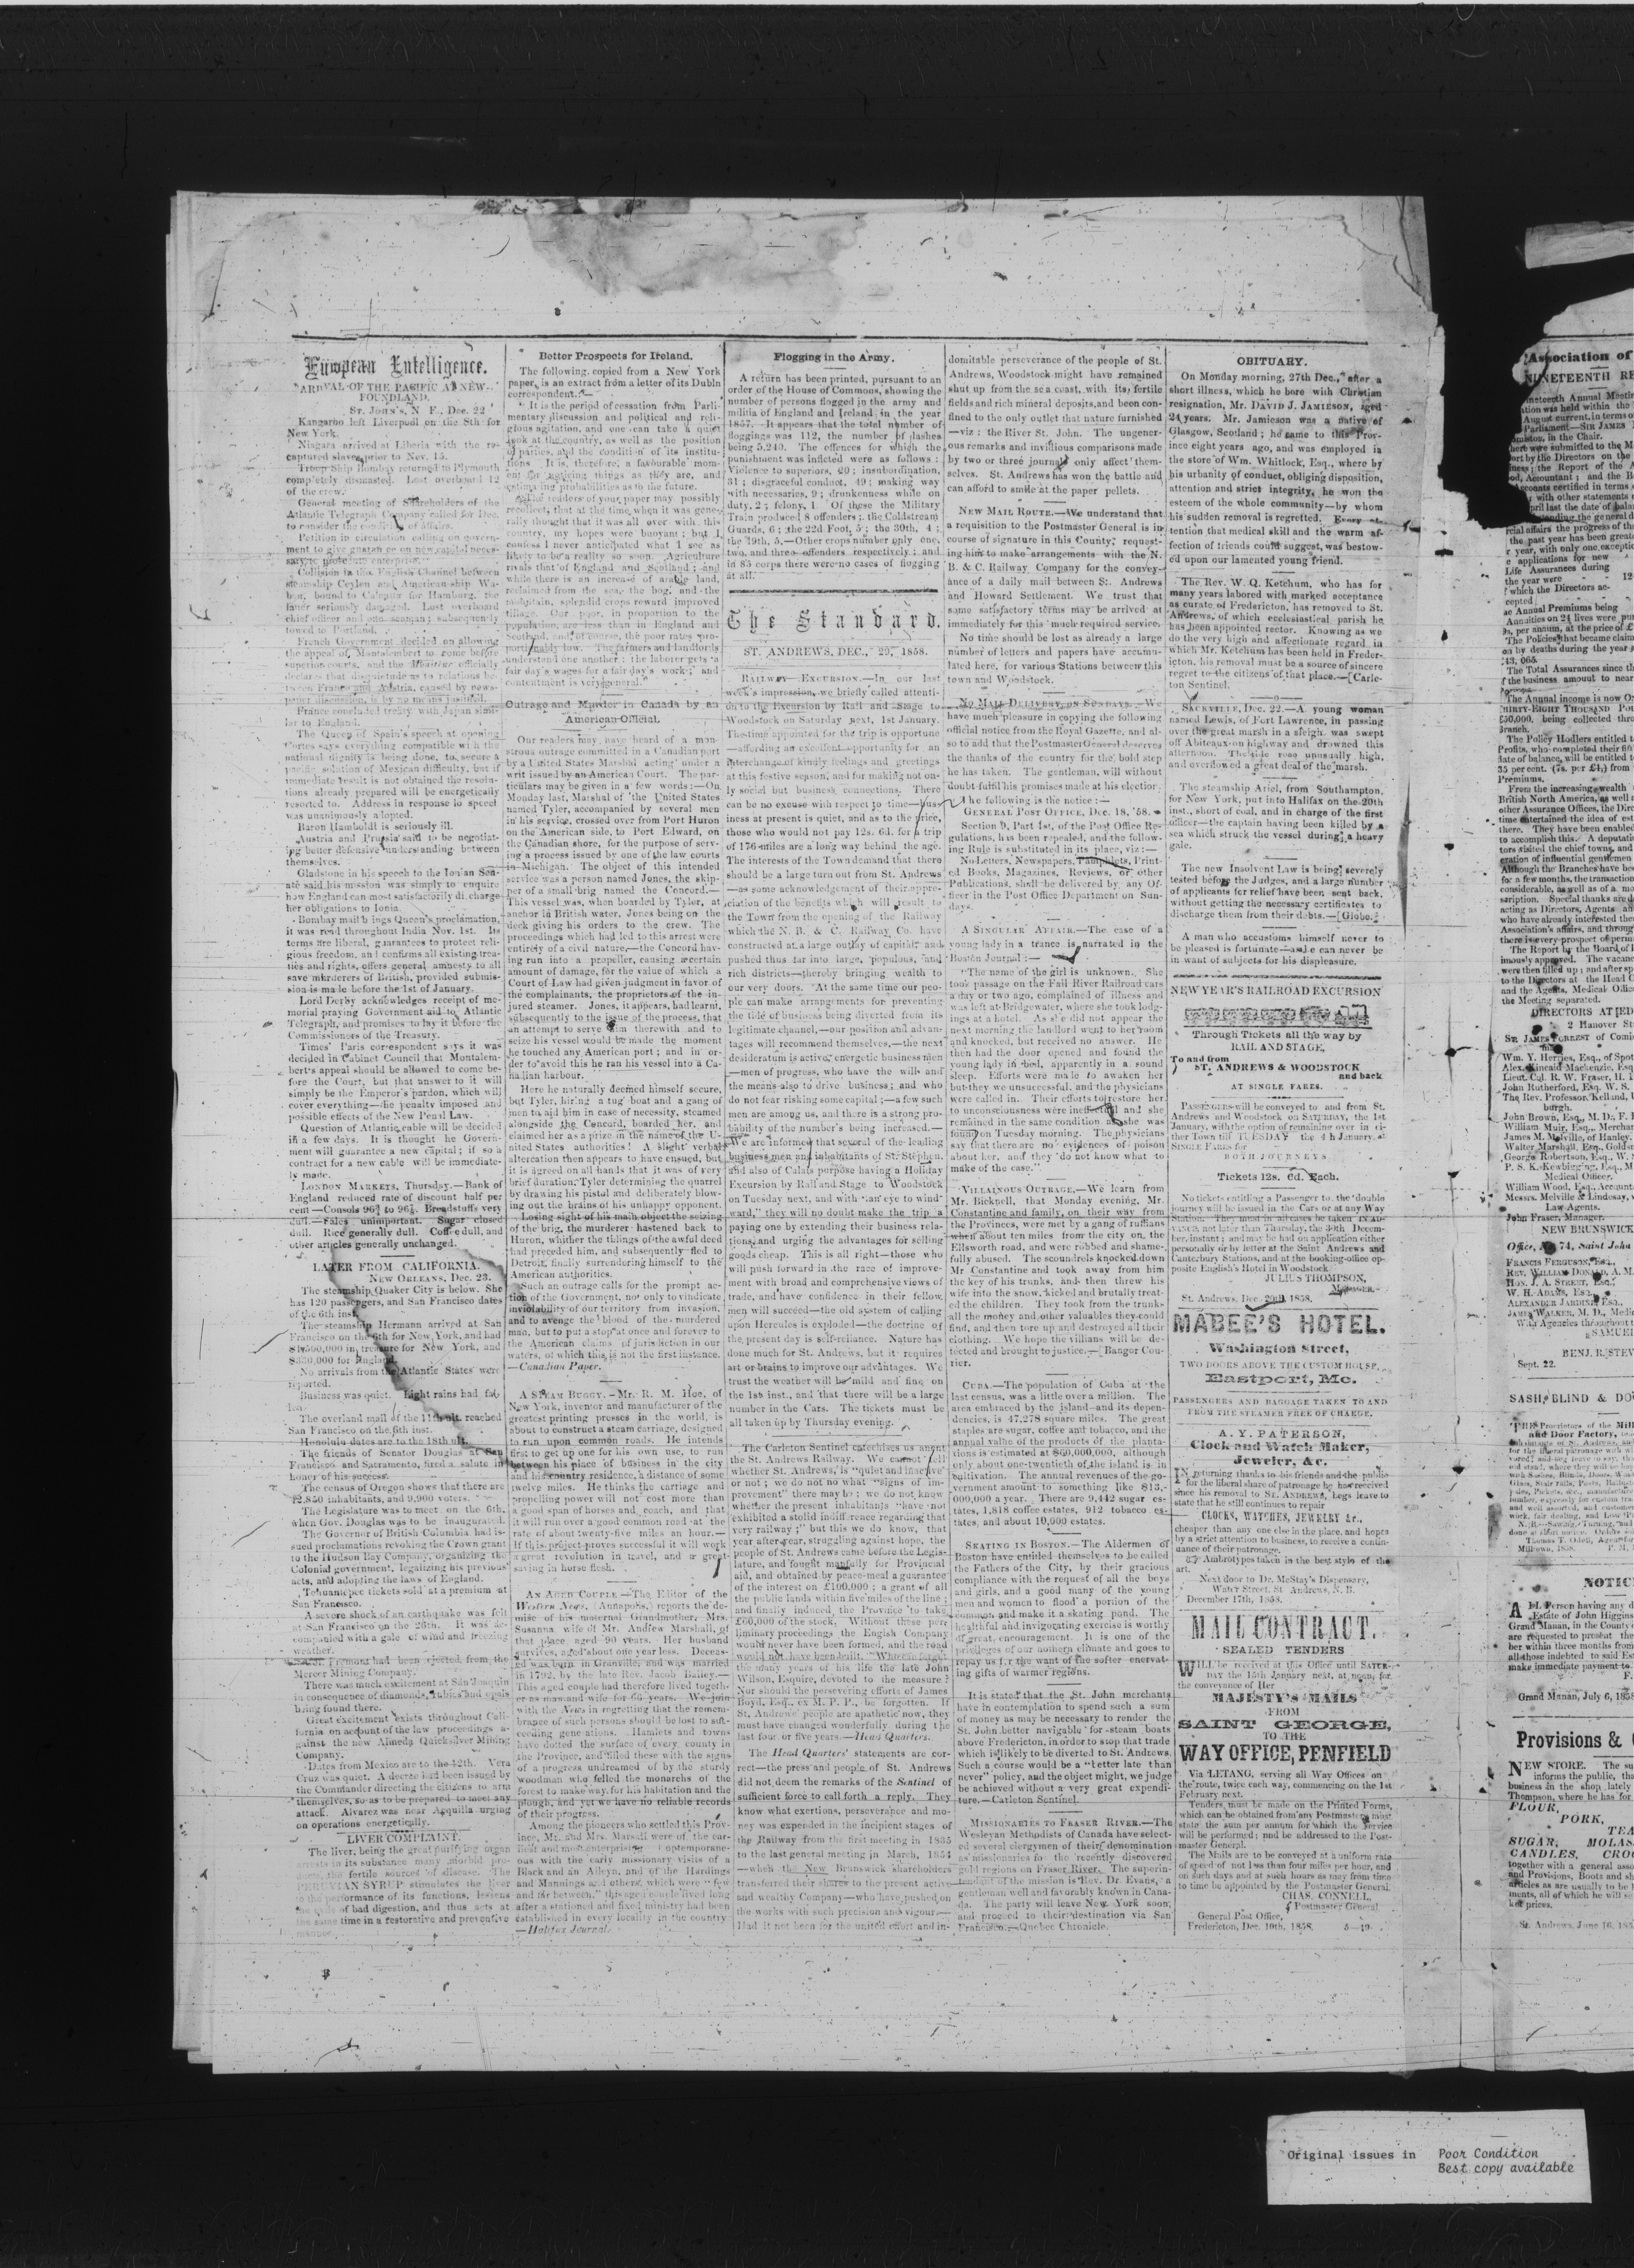 European Intelligence.
ARRIVAL OF THE PACIFIC AT NEW-
FOUNDLAND.
ST. JOHN'S, N. F., Dec. 22
Kangaroo left Liverpool on the 8th for
New York.
Niagara arrived at Liberia with the re-
captured slaves prior to Nov. 15.
Troop Ship Bombay returned to Plymouth
completely dismasted. Lost overboard 12
of the crew.
General meeting of Shareholders of the
Atlantic Telegraph Company called for Dec.
to consider the condition of affairs.
Petition in circulation calling on govern-
ment to give guarantee on new capital neces-
sary to
Collision in the English Channel between
steamship Ceylon and American ship Wa-
bound to Calcutta for Hamburg, the
latter seriously damaged. Lost overboard
chief officer and one seaman; subsequently
towed to Portland.
French Government decided on allowing
the appeal of Montalembert to come before
superior courts, and the Moniteur officially
declares that disquietude as to relations be-
tween France and Austria, caused by news-
paper discussion, is by no means justified.
France concluded treaty with Japan simi-
lar to England.
The Queen of Spain's speech at opening
Cortes says everything compatible with the
national dignity is being done, to secure a
pacific solution of Mexican difficulty, but if
immediate result is not obtained the resolu-
tions already prepared will be energetically
resorted to. Address in response to speech
was unanimously adopted.
Baron Humboldt is seriously ill.
Austria and Prussia said to be negotiat-
ing better defensive understanding between
themselves.
Gladstone in his speech to the Ionian Sen-
ate said his mission was simply to enquire
how England can most satisfactorily discharge
her obligations to Ionia.
Bombay mail brings Queen's proclamation,
it was read throughout India Nov. 1st. Its
terms are liberal, guarantees to protect reli-
gious freedom, and confirms all existing trea-
ties and rights, offers general amnesty to all
save murderers of British, provided submis-
sion is made before the 1st of January.
Lord Derby acknowledges receipt of me-
morial praying Government aid to Atlantic
Telegraph, and promises to lay it before the
Commissioners of the Treasury.
Times' Paris correspondent says it was
decided in Cabinet Council that Montalem-
bert's appeal should be allowed to come be-
fore the Court, but that answer to it will
simply be the Emperor's pardon, which will
cover everything—the penalty imposed and
possible effects of the New Penal Law.
Question of Atlantic cable will be decided
in a few days. It is thought he Govern-
ment will guarantee a new capital; if so a
contract for a new cable will be immediate-
ly made.
LONDON MARKETS, Thursday.—Bank of
England reduced rate of discount half per
cent—Consols 96¾ to 96⅞. Breadstuffs very
dull.—Sales unimportant. Sugar closed
dull. Rice generally dull. Coffee dull, and
other articles generally unchanged.
LATER FROM CALIFORNIA.
NEW ORLEANS, Dec. 23.
The steamship Quaker City is below. She
has 120 passengers, and San Francisco dates
of the 6th inst.
The steamship Hermann arrived at San
Francisco on the 6th for New York, and had
in treasure for New York, and
$330,000 for England.
No arrivals from the Atlantic States were
reported.
Business was quiet. Light rains had fal-
len.
The overland mail of the 11th ult. reached
San Francisco on the 6th inst.
Honolulu dates are to the 18th ult.
The friends of Senator Douglas at San
Francisco and Sacramento, fired a salute in
honor of his success.
The census of Oregon shows that there are
42,850 inhabitants, and 9,900 voters.
The Legislature was to meet on the 6th,
when Gov. Douglas was to be inaugurated.
The Governor of British Columbia had is-
sued proclamations revoking the Crown grant
to the Hudson Bay Company, organizing the
Colonial government, legalizing his previous
acts, and adopting the laws of England.
Tehuantepec tickets sold at a premium at
San Francisco.
A severe shock of an earthquake was felt
at San Francisco on the 26th. It was ac-
companied with a gale of wind and freezing
weather.
Col. Fremont had been ejected from the
Merced Mining Company.
There was much excitement at San Joaquin
in consequence of diamonds, rubies and opals
being found there.
Great excitement exists throughout Cali-
fornia on account of the law proceedings a-
gainst the new Almeda Quicksilver Mining
Company.
Dates from Mexico are to the 12th. Vera
Cruz was quiet. A decree had been issued by
the Commander directing the citizens to arm
themselves, so as to be prepared to meet any
attack. Alvarez was near Acquilla urging
on operations energetically.
LIVER COMPLAINT.
The liver, being the great purifying organ
arrests in its substance many morbid pro-
ducts, the fertile sources of disease. The
PERUVIAN SYRUP stimulates the liver
to the performance of its functions, lessens
the evils of bad digestion, and thus acts at
the same time in a restorative and preventive
manner.
Better Prospects for Ireland.
The following, copied from a New York
paper, is an extract from a letter of its Dublin
correspondent:—
"It is the period of cessation from Parli-
mentary discussion and political and reli-
gious agitation, and one can take a quiet
look at the country, as well as the position
of parties, and the condition of its institu-
tions. It is, therefore, a favourable mom-
ent for noticing things as they are, and
estimating probabilities as to the future.
The readers of your paper may possibly
recollect, that at the time when it was gene-
rally thought that it was all over with this
country, my hopes were buoyant; but I
confess I never anticipated what I see as
likely to be a reality so soon. Agriculture
rivals that of England and Scotland; and
while there is an increase of arable land,
reclaimed from the sea, the bog, and the
mountain, splendid crops reward improved
tillage. Our poor, in proportion to the
population, are less than in England and
Scotland, and, of course, the poor rates pro-
portionably low. The farmers and landlords
understand one another; the laborer gets 'a
fair day's wages for a fair day's work;' and
contentment is very general."
Outrage and Murder in Canada by an
American Official.
Our readers may have heard of a mon-
strous outrage committed in a Canadian port
by a United States Marshal acting under a
writ issued by an American Court. The par-
ticulars may be given in a few words:—On
Monday last, Marshal of the United States
named Tyler, accompanied by several men
in his service, crossed over from Port Huron
on the American side, to Port Edward, on
the Canadian shore, for the purpose of serv-
ing a process issued by one of the law courts
in Michigan. The object of this intended
service was a person named Jones, the skip-
per of a small brig named the Concord.—
This vessel was, when boarded by Tyler, at
anchor in British water, Jones being on the
deck giving his orders to the crew. The
proceedings which had led to this arrest were
entirely of a civil nature,—the Concord hav-
ing run into a propeller, causing a certain
amount of damage, for the value of which a
Court of Law had given judgment in favor of
the complainants, the proprietors of the in-
jured steamer. Jones, it appears, had learnt,
subsequently to the issue of the process, that
an attempt to serve him therewith and to
seize his vessel would be made the moment
he touched any American port; and in or-
der to avoid this he ran his vessel into a Ca-
nadian harbour.
Here he naturally deemed himself secure,
but Tyler, hiring a tug boat and a gang of
men to aid him in case of necessity, steamed
alongside the Concord, boarded her, and
claimed her as a prize in the name of the U-
nited States authorities! A slight verbal
altercation then appears to have ensued, but
it is agreed on all hands that it was of very
brief duration, Tyler determining the quarrel
by drawing his pistol and deliberately blow-
ing out the brains of his unhappy opponent.
Losing sight of his main object the seizing
of the brig, the murderer hastened back to
Huron, whither the tidings of the awful deed
had preceded him, and subsequently fled to
Detroit, finally surrendering himself to the
American authorities.
Such an outrage calls for the prompt ac-
tion of the Government, not only to vindicate
inviolability of our territory from invasion,
and to avenge the blood of the murdered
man, but to put a stop at once and forever to
the American claims of jurisdiction in our
waters, of which this is not the first instance.
—Canadian Paper.
A STEAM BUGGY.—Mr. R. M. Hoe, of
New York, inventor and manufacturer of the
greatest printing presses in the world, is
about to construct a steam carriage, designed
to run upon common roads. He intends
first to get up one for his own use, to run
between his place of business in the city
and his country residence, a distance of some
twelve miles. He thinks the carriage and
propelling power will not cost more than
a good span of horses and coach, and that
it will run over a good common road at the
rate of about twenty-five miles an hour.—
If this project proves successful it will work
a great revolution in travel, and a great
saving in horse flesh.
AN AGED COUPLE.—The Editor of the
Western News, (Annapolis,) reports the de-
mise of his maternal Grandmother, Mrs.
Susanna, wife of Mr. Andrew Marshall, of
that place, aged 90 years. Her husband
survives, aged about one year less. Deceas-
ed was born in Granville, and was married
in 1792, by the late Rev. Jacob Bailey.—
This aged couple had therefore lived togeth-
er as man and wife for 66 years. We join
with the News in regretting that the remem-
brance of such persons should be lost to suc-
ceeding generations. Hamlets and towns
have dotted the surface of every county in
the Province, and filled these with the signs
of a progress undreamed of by the sturdy
woodman who felled the monarchs of the
forest to make way for his habitation and the
plough, and yet we have no reliable records
of their progress.
Among the pioneers who settled this Prov-
ince, Mr. and Mrs. Marshall were of the ear-
liest and most enterprising; contemporane-
ous with the early missionary visits of a
Black and an Alleyn, and of the Hardings
and Mannings and others, which were "few
and far between," this aged couple lived long
after a stationed and fixed ministry had been
established in every locality in the country
—Halifax Journal.
Flogging in the Army.
A return has been printed, pursuant to an
order of the House of Commons, showing the
number of persons flogged in the army and
militia of England and Ireland in the year
1857. It appears that the total number of
floggings was 112, the number of lashes
being 5,240. The offences for which the
punishment was inflicted were as follows:
Violence to superiors, 20; insubordination,
31; disgraceful conduct, 49; making way
with necessaries, 9; drunkenness while on
duty, 2; felony, 1. Of these the Military
Train produced 8 offenders; the Coldstream
Guards, 6; the 22d Foot, 5; the 30th, 4;
the 19th, 5.—Other crops number only one,
two, and three offenders respectively; and
in 85 corps there were no cases of flogging
at all.
The Standard.
ST. ANDREWS, DEC., 29, 1858.
RAILWAY EXCURSION.—In our last
week's impression, we briefly called attenti-
on to the Excursion by Rail and Stage to
Woodstock on Saturday next, 1st January.
The time appointed for the trip is opportune
—affording an excellent opportunity for an
interchange of kindly feelings and greetings
at this festive season, and for making not on-
ly social but business connections. There
can be no excuse with respect to time—bus-
iness at present is quiet, and as to the price,
those who would not pay 12s. 6d. for a trip
of 176 miles are a long way behind the age.
The interests of the Town demand that there
should be a large turn out from St. Andrews
—as some acknowledgement of their appre-
ciation of the benefits which will result to
the Town from the opening of the Railway
which the N. B. & C. Railway Co. have
constructed at a large outlay of capital and
pushed thus far into large, populous, and
rich districts—thereby bringing wealth to
our very doors. At the same time our peo-
ple can make arrangements for preventing
the tide of business being diverted from its
legitimate channel,—our position and advan-
tages will recommend themselves,—the next
desideratum is active, energetic business men
—men of progress, who have the will and
the means also to drive business; and who
do not fear risking some capital;—a few such
men are among us, and there is a strong pro-
bability of the number's being increased.—
We are informed that several of the leading
business men and inhabitants of St. Stephen,
and also of Calais purpose having a Holiday
Excursion by Rail and Stage to Woodstock
on Tuesday next, and with "an eye to wind-
ward," they will no doubt make the trip a
paying one by extending their business rela-
tions, and urging the advantages for selling
goods cheap. This is all right—those who
will push forward in the race of improve-
ment with broad and comprehensive views of
trade, and have confidence in their fellow
men will succeed—the old system of calling
upon Hercules is exploded—the doctrine of
the present day is self-reliance. Nature has
done much for St. Andrews, but it requires
art or brains to improve our advantages. We
trust the weather will be mild and fine on
the 1st inst., and that there will be a large
number in the Cars. The tickets must be
all taken up by Thursday evening.
The Carleton Sentinel catechises us anent
the St. Andrews Railway. We cannot tell
whether St. Andrews, is "quiet and inactive"
or not; we do not no what "signs of im-
provement" there may be; we do not know
whether the present inhabitants "have not
exhibited a stolid indifference regarding that
very railway;" but this we do know, that
year after year, struggling against hope, the
people of St. Andrews came before the Legis-
lature, and fought manfully for Provincial
aid, and obtained by peace-meal a guarantee
of the interest on £100,000; a grant of all
the public lands within five miles of the line;
and finally induced the Province to take
£60,000 of the stock. Without these prer
liminary proceedings the Engish Company
would never have been formed, and the road
would not have been built. "Who can forget
the many years of his life the late John
Wilson, Esquire, devoted to the measure?
Nor should the persevering efforts of James
Boyd, Esq., ex M. P. P., be forgotten. If
St. Andrews people are apathetic now, they
must have changed wonderfully during the
last four or five years.—Head Quarters.
The Head Quarters' statements are cor-
rect—the press and people of St. Andrews
did not deem the remarks of the Sentinel of
sufficient force to call forth a reply. They
know what exertions, perseverance and mo-
ney was expended in the incipient stages of
the Railway from the first meeting in 1835
to the last general meeting in March, 1854
—when the New Brunswick shareholders
transferred their shares to the present active
and wealthy Company—who have pushed on
the works with such precision and vigour.—
Had it not been for the united effort and in-
domitable perseverance of the people of St.
Andrews, Woodstock might have remained
shut up from the sea coast, with its fertile
fields and rich mineral deposits, and been con-
fined to the only outlet that nature furnished
—viz: the River St. John. The ungener-
ous remarks and invidious comparisons made
by two or three journals only affect them-
selves. St. Andrews has won the battle and
can afford to smile at the paper pellets.
NEW MAIL ROUTE.—We understand that
a requisition to the Postmaster General is in
course of signature in this County, request-
ing him to make arrangements with the N.
B. & C. Railway Company for the convey-
ance of a daily mail between St. Andrews
and Howard Settlement. We trust that
some satisfactory terms may be arrived at
immediately for this much required service.
No time should be lost as already a large
number of letters and papers have accumu-
lated here, for various Stations between this
town and Woodstock.
NO MAIL DELIVERY ON SUNDAYS.—We
have much pleasure in copying the following
official notice from the Royal Gazette, and al-
so to add that the Postmaster General deserves
the thanks of the country for the bold step
he has taken. The gentleman, will without
doubt fulfil his promises made at his election.
The following is the notice:—
GENERAL POST OFFICE, Dec. 18, '58.
Section 9, Part 1st, of the Post Office Re-
gulations, has been repealed, and the follow-
ing Rule is substituted in its place, viz:—
No Letters, Newspapers, Pamphlets, Print-
ed Books, Magazines, Reviews, or other
Publications, shall be delivered by any Of-
ficer in the Post Office Department on Sun-
days.
A SINGULAR AFFAIR.—The case of a
young lady in a trance is narrated in the
Boston Journal:—
"The name of the girl is unknown. She
took passage on the Fall River Railroad cars
a day or two ago, complained of illness and
was left at Bridgewater, where she took lodg-
ings at a hotel. As she did not appear the
next morning the landlord went to her room
and knocked, but received no answer. He
then had the door opened and found the
young lady in bed, apparently in a sound
sleep. Efforts were made to awaken her
but they we unsuccessful, and the physicians
were called in. Their efforts to restore her
to unconsciousness were ineffectual and she
remained in the same condition as she was
found on Tuesday morning. The physicians
say that there are no evidences of poison
about her, and they do not know what to
make of the case."
VILLAINOUS OUTRAGE.—We learn from
Mr. Bicknell, that Monday evening, Mr.
Constantine and family, on their way from
the Provinces, were met by a gang of ruffians
when about ten miles from the city on, the
Ellsworth road, and were robbed and shame-
fully abused. The scoundrels knocked down
Mr Constantine and took away from him
the key of his trunks, and then threw his
wife into the snow, kicked and brutally treat-
ed the children. They took from the trunks
all the money and other valuables they could
find, and then tore up and destroyed all their
clothing. We hope the villians will be de-
tected and brought to justice.—[Bangor Cou-
rier.
CUBA.—The population of Cuba at the
last census, was a little over a million. The
area embraced by the island and its depen-
dencies, is 47,278 square miles. The great
staples are sugar, coffee and tobacco, and the
annual value of the products of the planta-
tions is estimated at $60,000,000, although
only about one-twentieth of the island is in
cultivation. The annual revenues of the go-
vernment amount to something like $13,-
000,000 a year. There are 9,442 sugar es-
tates, 1,818 coffee estates, 912 tobacco es-
tates, and about 10,000 estates.
SKATING IN BOSTON.—The Aldermen of
Boston have entitled themselves to be called
the Fathers of the City, by their gracious
compliance with the request of all the boys
and girls, and a good many of the young
men and women to flood a portion of the
common and make it a skating pond. The
healthful and invigorating exercise is worthy
of great encouragement. It is one of the
privileges of our nothern climate and goes to
repay us for the want of the softer enervat-
ing gifts of warmer regions.
It is stated that the St. John merchants
have in contemplation to spend such a sum
of money as may be necessary to render the
St. John better navigable for steam boats
above Fredericton, in order to stop that trade
which is likely to be diverted to St. Andrews.
Such a course would be a "better late than
never" policy, and the object might, we judge
be achieved without a very great expendi-
ture.—Carleton Sentinel.
MISSIONARIES TO FRASER RIVER.—The
Wesleyan Methodists of Canada have select-
ed several clergymen of their denomination
as missionaries for the recently discovered
gold regions on Fraser River. The superin-
tendent of the mission is Rev. Dr. Evans, a
gentleman well and favorably known in Cana-
da. The party will leave New York soon,
and proceed to their destination via San
Francisco.—Quebec Chronicle.
OBITUARY.
On Monday morning, 27th Dec., after a
short illness, which he bore with Christian
resignation, Mr. DAVID J. JAMIESON, aged
24 years. Mr. Jamieson was a native of
Glasgow, Scotland; he came to this Prov-
ince eight years ago, and was employed in
the store of Wm. Whitlock, Esq., where by
his urbanity of conduct, obliging disposition,
attention and strict integrity, he won the
esteem of the whole community—by whom
his sudden removal is regretted. Every at-
tention that medical skill and the warm af-
fection of friends could suggest, was bestow-
ed upon our lamented young friend.
The Rev. W. Q. Ketchum, who has for
many years labored with marked acceptance
as curate of Fredericton, has removed to St.
Andrews, of which ecclesiastical parish he
has been appointed rector. Knowing as we
do the very high and affectionate regard in
which Mr. Ketchum has been held in Freder-
icton, his removal must be a source of sincere
regret to the citizens of that place.—[Carle-
ton Sentinel.
SACKVILLE, Dec. 22.—A young woman
named Lewis, of Fort Lawrence, in passing
over the great marsh in a sleigh was swept
off Abiteaux on highway and drowned this
afternoon. The tide rose unusually high,
and overflowed a great deal of the marsh.
The steamship Ariel, from Southampton,
for New York, put into Halifax on the 20th
inst., short of coal, and in charge of the first
officer—the captain having been killed by a
sea which struck the vessel during a heavy
gale.
The new Insolvent Law is being severely
tested before the Judges, and a large number
of applicants for relief have been sent back,
without getting the necessary certificates to
discharge them from their debts.—[Globe.
A man who accustoms himself never to
be pleased is fortunate—as he can never be
in want of subjects for his displeasure.
NEW YEAR'S RAILROAD EXCURSION
Through Tickets all the way by
RAIL AND STAGE,
To and from
ST. ANDREWS & WOODSTOCK
and back
AT SINGLE FARES.
PASSENGERS will be conveyed to and from St.
Andrews and Woodstock on SATURDAY, the 1st
January, with the option of remaining over in ei-
ther Town till TUESDAY the 4th January, at
SINGLE FARES for
BOTH JOURNEYS.
Tickets 12s. 6d. Each.
No tickets entitling a Passenger to the double
journey will be issued in the Cars or at any Way
Station. They must in all cases be taken IN AD-
VANCE, not later than Thursday, the 30th Decem-
ber, instant; and may be had on application either
personally or by letter at the Saint Andrews and
Canterbury Stations, and at the booking-office op-
posite English's Hotel in Woodstock
JULIUS THOMPSON,
MANAGER.
St. Andrews, Dec. 20th 1858.
MABEE'S HOTEL.
Washington Street,
TWO DOORS ABOVE THE CUSTOM HOUSE,
Eastport, Me.
PASSENGERS AND BAGGAGE TAKEN TO AND
FROM THE STEAMER FREE OF CHARGE.
A. Y. PATERSON,
Clock and Watch Maker,
Jeweler, &c.
IN returning thanks to his friends and the public
for the liberal share of patronage he has received
since his removal to St. ANDREWS, begs leave to
state that he still continues to repair
CLOCKS, WATCHES, JEWELRY &c.,
cheaper than any one else in the place, and hopes
by a strict attention to business, to receive a contin-
uance of their patronage.
Ambrotypes taken in the best style of the
art.
Next door to Dr. McStay's Dispensary,
Water Street, St. Andrews, N. B.
December 17th, 1858.
MAIL CONTRACT.
SEALED TENDERS
WILL be received at this Office until SATUR-
DAY the 15th January next, at noon, for
the conveyance of Her
MAJESTY'S MAILS
FROM
SAINT GEORGE,
TO THE
WAY OFFICE, PENFIELD
Via LETANG, serving all Way Offices on
the route, twice each way, commencing on the 1st
February next.
Tenders must be made on the Printed Forms,
which can be obtained from any Postmaster, must
state the sum per annum for which the Service
will be performed; and be addressed to the Post-
master General.
The Mails are to be conveyed at a uniform rate
of speed of not less than four miles per hour, and
on such days and at such hours as may from time
to time be appointed by the Postmaster General.
CHAS. CONNELL,
Postmaster General
General Post Office,
Fredericton, Dec. 10th, 1858. 5—19
Association of
NINETEENTH RE
DIRECTORS AT ED
2 Hanover St
Wm. Y. Herries, Esq., of Spot
Alex. Kincaid Mackenzie, Esq
Lieut. Col. R. W. Fraser, H.
John Rutherford, Esq. W. S.
The Rev. Professor Kelland,
burgh.
John Brown, Esq., M. D., F.
William Muir, Esq., Merchan
James M. Melville, of Hanley.
Walter Marshall, Esq., Gold
George Robertson, Esq., W.
P. S. K. Newbigging, Esq., M
Medical Officer.
William Wood, Esq., Accounta
Messrs. Melville & Lindesay,
Law Agents.
John Fraser, Manager.
NEW BRUNSWICK
Office, No 74, Saint John
FRANCIS FERGUSON, Esq.,
REV. WILLIAM DONALD, A. M.
HON. J. A. STREET, Esq.,
W. H. ADAMS, Esq.
ALEXANDER JARDINE, Esq.,
JAMES WALKER, M. D., Medi
With Agencies throughout t
SAMUEL
BENJ. R. STEV
Sept. 22.
SASH, BLIND & DO
NOTIC
ALL Person having any d
Estate of John Higgins
Grand Manan, in the County
are requested to present the
ber within three months from
all those indebted to said Est
make immediate payment to
Grand Manan, July 6, 1858
Provisions &
NEW STORE. The su
informs the public, tha
business in the shop lately
Thompson, where he has for
FLOUR,
PORK,
TEA
SUGAR, MOLAS
CANDLES, CRO
together with a general asso
and Provisions, Boots and sh
articles as are usually to be
ments, all of which he will se
ket prices.
St. Andrews, June 16, 185
Original issues in Poor Condition
Best copy available